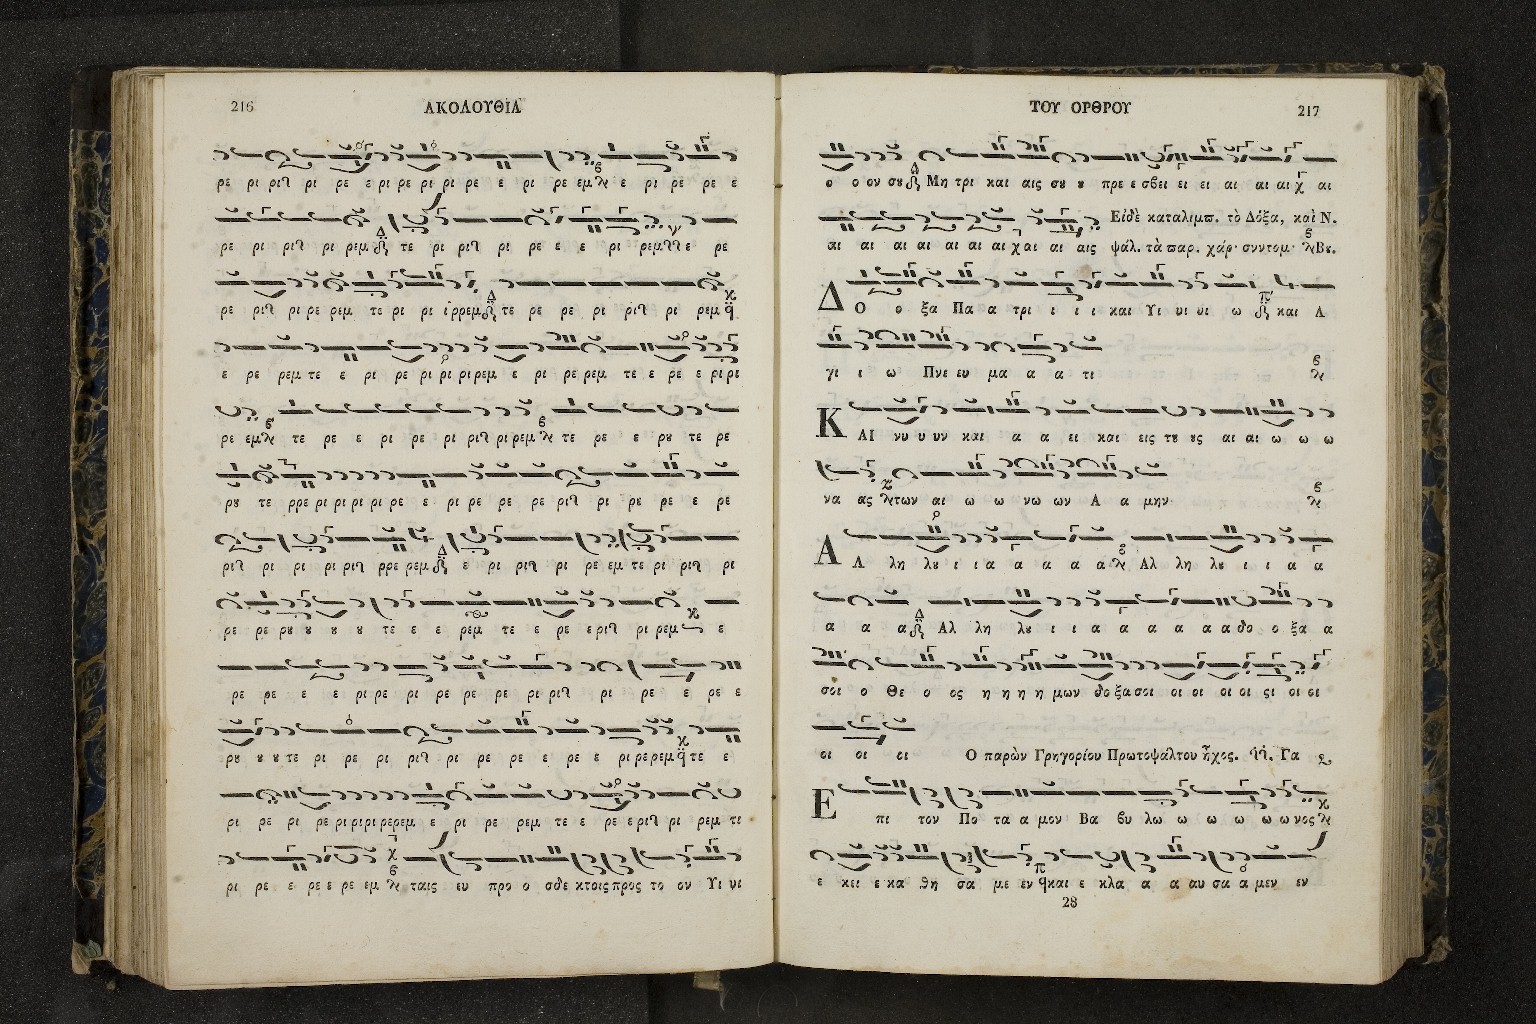 216
ΑΚΟΛΟΥΘΙΑ
ρε ρι ριρ ρι ρε ε ρι ρε ρι ρι ρε ε ρι ρε εμ ε ρι ρε ρε ε
ρε ρι ρι ρι ρεμ τε ρι ρι ρι ρε ε ε ρι ρεμ ε ρε
ρε ρι ρι ρε ρεμ τε ρι ρι ι ρρεμ τε ρε ρε ρι ρι ρι ρεμ
ε ρε ρεμ τε ε ρι ρε ρι ρι ρι ρεμ ε ρι ρε ρεμ τε ε ρε ε ρι ρι
ρε εμ τε ρε ε ρι ρε ρι ρι ρι ρεμ τε ρε ε ρȣ τε ρε
ρȣ τε ρρε ρι ρι ρι ρι ρε ε ρι ρε ρε ρε ρι ρι ρε ρε ε ρε
ρι ρι ρι ρι ρι ρρε ρεμ ε ρι ρι ρι ρε εμ τε ρι ρι ρι
ρε ρε ρȣ ȣ ȣ ȣ τε ε ε ρεμ τε ε ρε ε ρι ρι ρεμ ε
ρε ρε ε ε ρι ρε ρι ρε ρε ρε ρι ρι ρι ρε ε ρε ε
ρȣ ȣ ȣ τε ρι ρε ρι ρι ρι ρε ρε ε ρε ε ρι ρε ρεμ τε ε
ρι ρε ρι ρε ρι ρι ρι ρε ρεμ ε ρι ρε ρεμ τε ε ρε ε ρι ρι ρεμ τι
ρι ρε ε ρε ε ρε εμ ταις ευ προ ο σδε κτοις προς το ον Υι υι
ΤΟΥ ΟΡΘΡΟΥ
217
ο ο ον σȣ Μη τρι και αις σȣ ȣ πρε ε σβει ει ει αι αι αι χ αι
αι αι αι αι αι αι αι χαι αι αις
Εἰδὲ καταλιμπ. τὸ Δόξα, καὶ Ν.
ψάλ. τὰ παρ. χάρ· συντομ· Βȣ.
Δ Ο ο ξα Πα α τρι ι ι ι και Υι υι υι ω και Α
γι ι ω Πνε ευ μα α α τι
Κ ΑΙ νυ υ υν και α α ει και εις τȣ ȣς αι αι ω ω ω
να ας των αι ω ω νω ων Α α μην
Α Λ λη λȣ ι ι α α α α α α Αλ λη λȣ ι ι α α
α α α Αλ λη λȣ ι ι α α α α α α δο ο ξα α
σοι ο Θε ο ος η η η η μων δο ξα σοι οι οι οι οι ςι οι οι
οι οι οι Ο παρὼν Γρηγορίου Πρωτοψάλτου ἦχος. Γα
Ε πι τον Πο τα α μον Βα βυ λω ω ω ω ω ω ω νος
ε κει ε κα θη σα με εν και ε κλα α α αυ σα α μεν εν
28